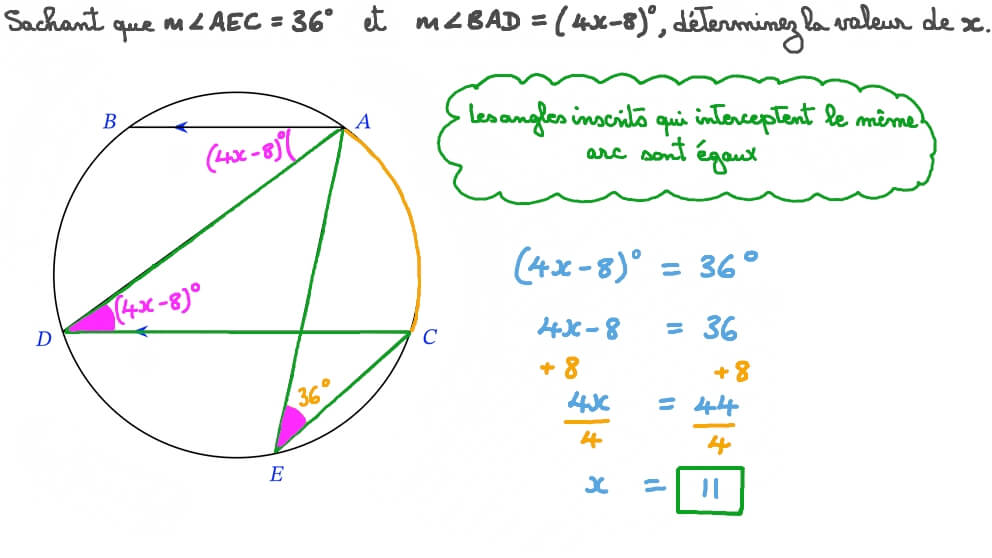 Sachant que m∠AEC = 36° et m∠BAD = (4x-8)°, déterminez la valeur de x.
Les angles inscrits qui interceptent le même
arc sont égaux
B
A
(4x-8)°
(4x-8)°
D
C
36°
E
(4x-8)° = 36°
4x-8 = 36
+8 +8
4x = 44
4 4
x = 11